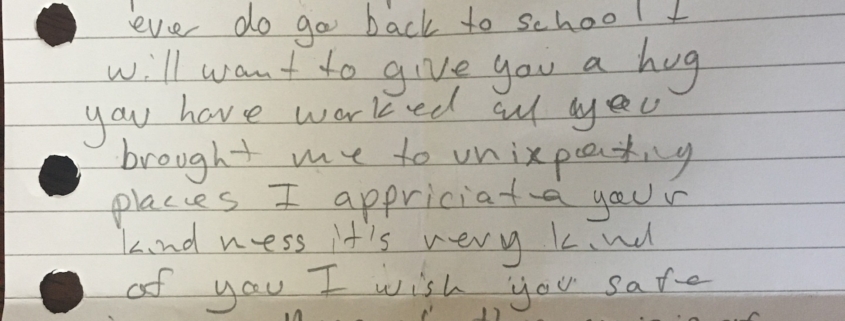 ever do go back to school I
will want to give you a hug
you have worked all you
brought me to unixpecting
places I appriciate your
kindness it's very kind
of you I wish you safe